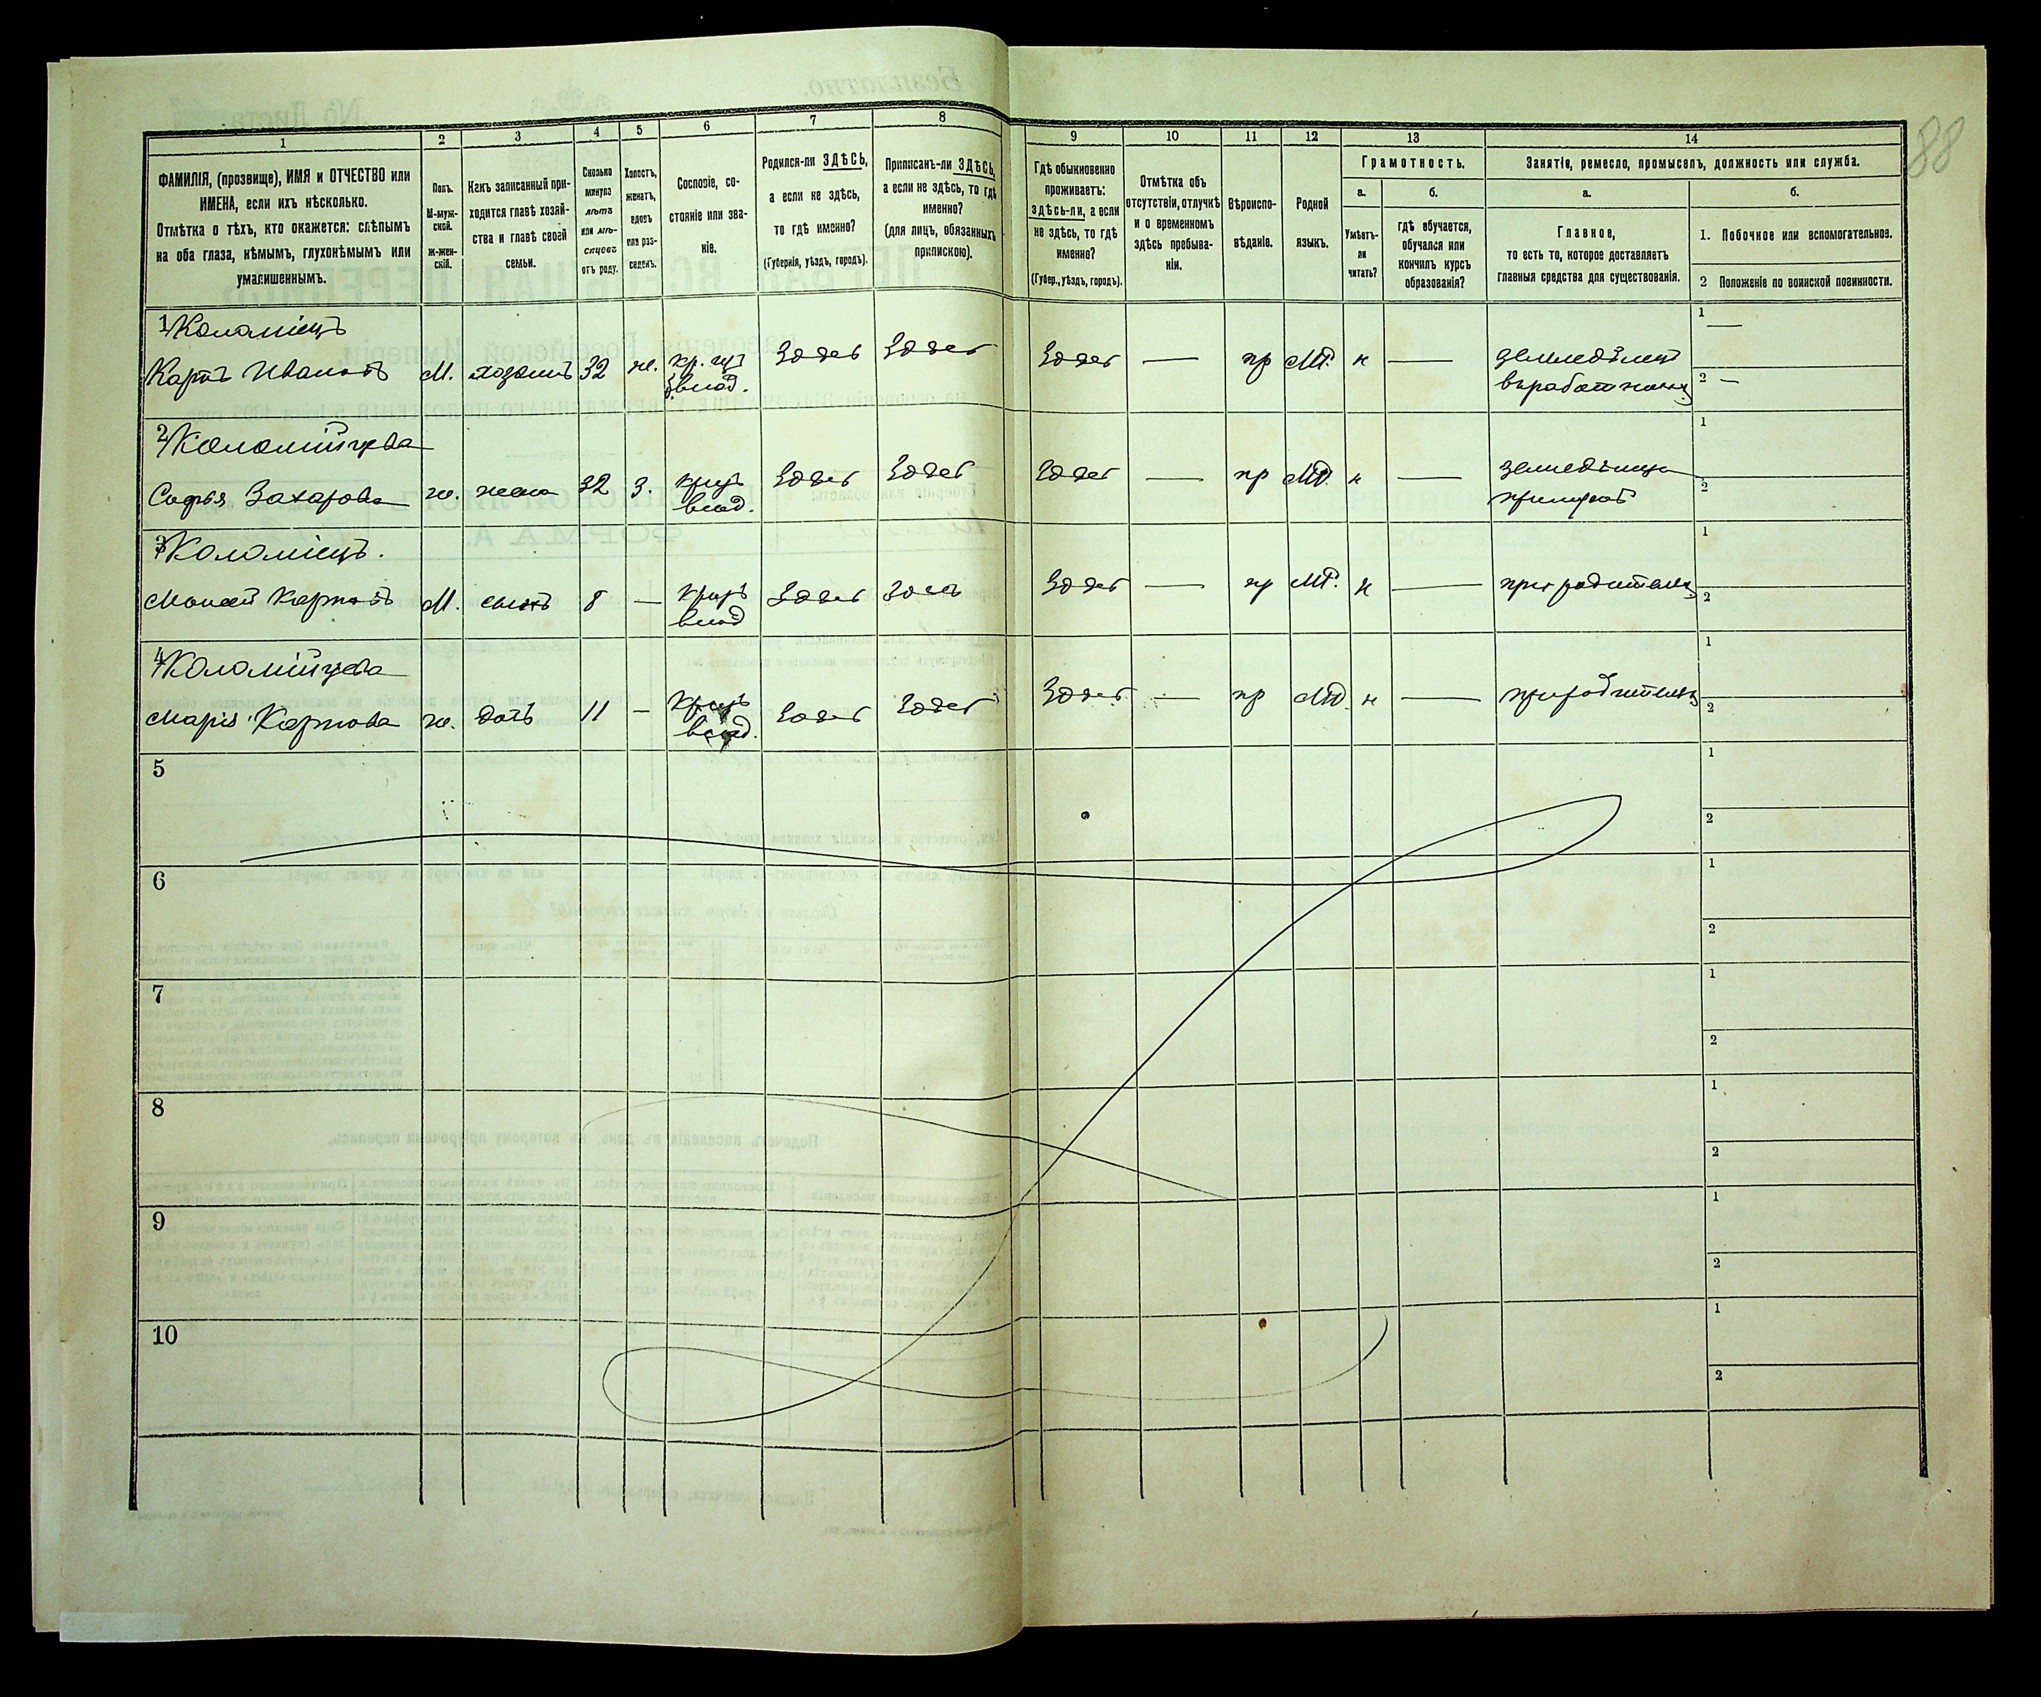 88
1 2 3 4 5 6 7 8 9 10 11 12 13 14
ФАМИЛІЯ, (прозвище), ИМЯ и ОТЧЕСТВО или
ИМЕНА, если ихъ нѣсколько.
Отмѣтка о тѣхъ, кто окажется: слѣпымъ
на оба глаза, нѣмымъ, глухонѣмымъ или
умалишеннымъ.
Полъ.
М-муж-
ской.
Ж-жен-
скій.
Какъ записанный при-
ходится главѣ хозяй-
ства и главѣ своей
семьи.
Сколько
минуло
лѣтъ
или мѣ-
сяцевъ
отъ роду.
Холостъ,
женатъ,
вдовъ
или раз-
веденъ.
Сословіе, со-
стояніе или зва-
ніе.
Родился-ли ЗДѢСЬ,
а если не здѣсь,
то гдѣ именно?
(Губернія, уѣздъ, городъ).
Приписанъ-ли ЗДѢСЬ,
а если не здѣсь, то гдѣ
именно?
(для лицъ, обязанныхъ
припискою).
Гдѣ обыкновенно
проживаетъ:
здѣсь-ли, а если
не здѣсь, то гдѣ
именно?
(Губер., уѣздъ, городъ).
Отмѣтка объ
отсутствіи, отлучкѣ
и о временномъ
здѣсь пребыва-
ніи.
Вѣроиспо-
вѣданіе.
Родной
языкъ.
Грамотность.
а. б.
Умѣетъ-
ли
читать?
гдѣ обучается,
обучался или
кончилъ курсъ
образованія?
Занятіе, ремесло, промыселъ, должность или служба.
а. б.
Главное,
то есть то, которое доставляетъ
главныя средства для существованія.
1. Побочное или вспомогательное.
2 Положеніе по воинской повинности.
1 Коломіецъ
Карпъ Ивановъ М. хозяинъ 32 ж. Здѣсь Здѣсь Здѣсь — пр н — земледѣлецъ 1 — 2 —
2 Коломійцева
Софья Захарова ж. жена 32 З. Здѣсь Здѣсь Здѣсь — пр н — 1 2
3 Коломіецъ.
Карповъ М. сынъ 8 — Здѣсь Здѣсь Здѣсь — пр н — при родителяхъ 1 2
4 Коломійцева
Марія Карпова ж. дочь 11 — Здѣсь Здѣсь Здѣсь — пр н — при родителяхъ 1 2
5 1 2
6 1 2
7 1 2
8 1 2
9 1 2
10 1 2